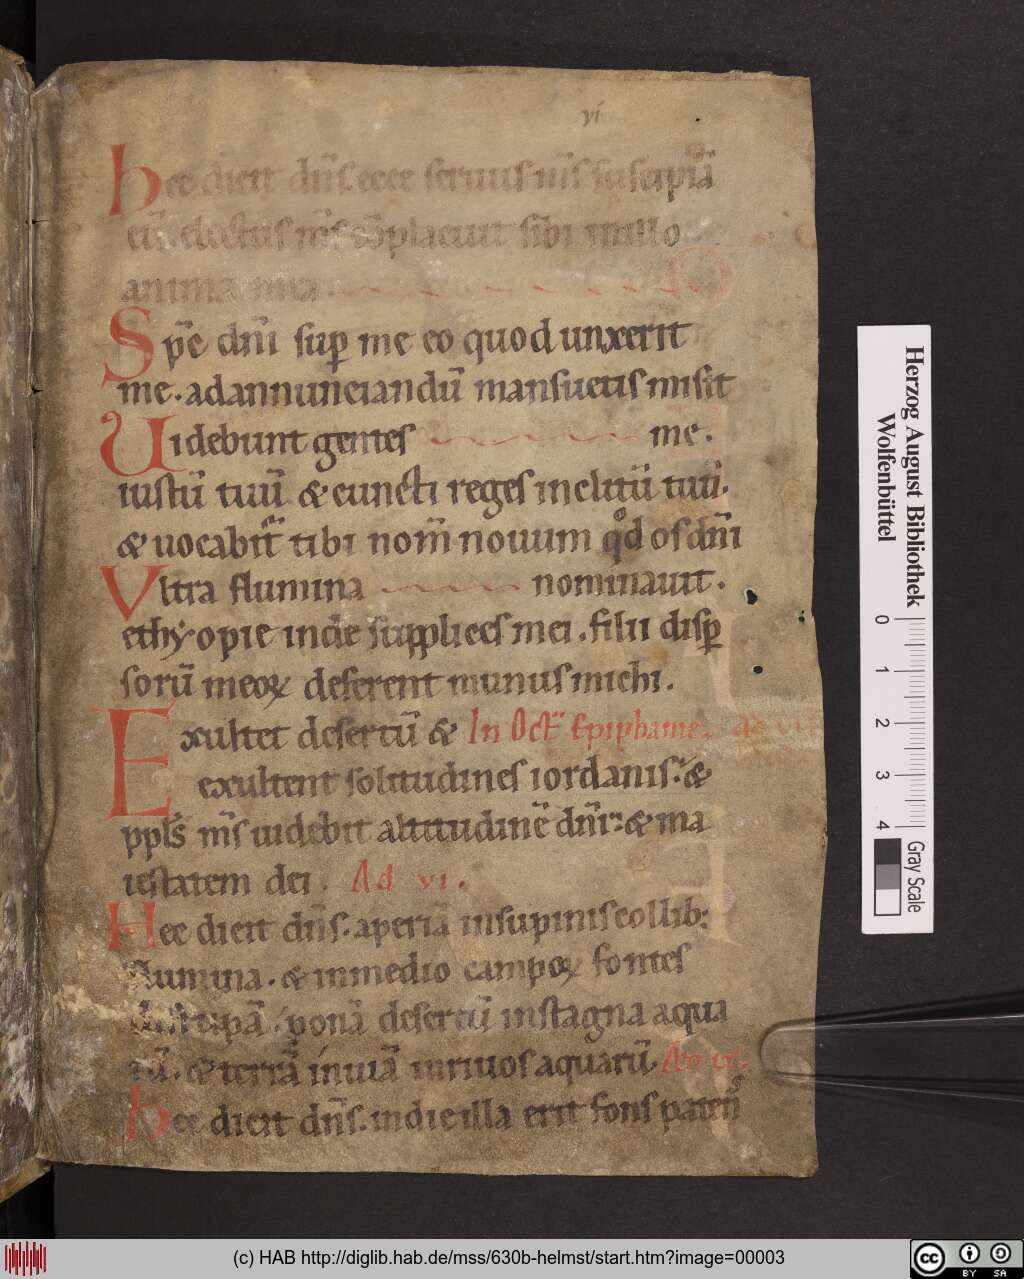 vi
hec dicit dn̄s. ecce seruus m̄s suscipiā
eū. electus m̄s cō̄placuit sibi inillo
anima mea
Spc̄ dn̄i sup̱ me eo quod unxerit
me. adannunciandū mansuetis misit
Uidebunt gentes me.
iustū tuū & cuncti reges inclitū tuū.
& uocabit᷑ tibi nom̄ nouum qd̊ os dn̄i
Vltra flumina nominauit.
ethyopie inde supplices mei. filii disp̱
sorū meoꝝ deferent munus michi.
Exultet desertū & In Oct̄ Epiphanie.
exultent solitudines iordanis. &
ppl̄s m̄s uidebit altitudinē dn̄i. & ma
iestatem dei. Ad vi.
Hec dicit dn̄s. aperiā insupinis collib;
flumina. & inmedio campoꝝ fontes
disrūpā. ponā desertū instagna aqua
rū. & terrā inuiā inriuos aquarū.
hec dicit dn̄s. indie illa erit fons paten᷒
Herzog August Bibliothek
Wolfenbüttel
0 1 2 3 4 Gray Scale
(c) HAB http://diglib.hab.de/mss/630b-helmst/start.htm?image=00003
cc BY SA